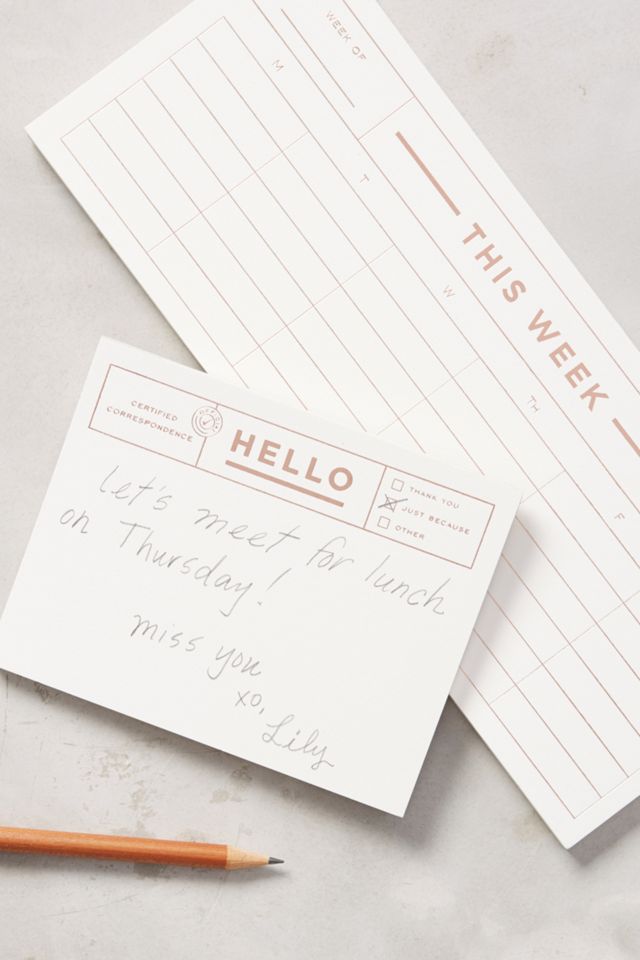 WEEK OF
M
T
W
TH
F
THIS WEEK
CERTIFIED
CORRESPONDENCE
HELLO
THANK YOU
JUST BECAUSE
OTHER
Let's meet for lunch
on Thursday!
miss you
xo,
Lily